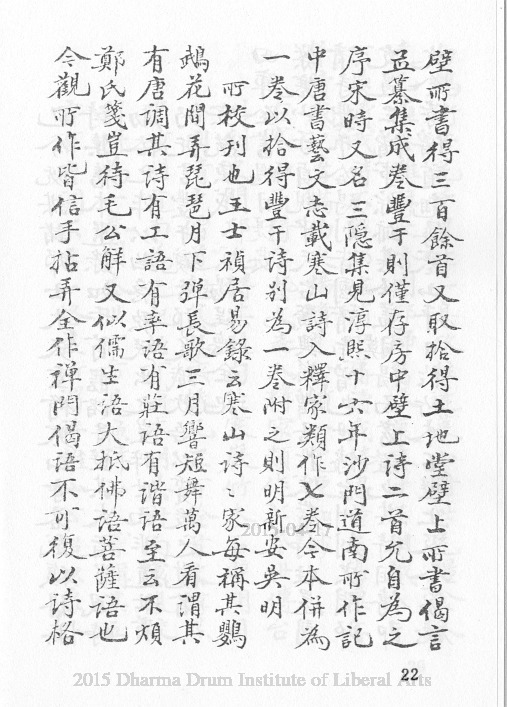 壁所書得三百餘首又取拾得土地堂壁上所書偈言
並纂集成卷豐干則僅存房中壁上詩二首允自為之
序宋時又名三隐集見淳熙十六年沙門道南所作記
中唐書藝文志載寒山詩入釋家類作七卷今本併為
一卷以拾得豐干诗别為一卷附之則明新安吳明
所校刊也王士禎居易錄云寒山诗〻家每稱其鸚
鵡花間弄琵琶月下彈長歌三月響短舞萬人看謂其
有唐調其诗有工語有率語有莊語有諧語至云不煩
鄭氏箋豈待毛公解又似儒生語大抵佛語菩薩語也
今觀所作皆信手拈弄全作禅門偈語不可復以诗格
22
2015 Dharma Drum Institute of Liberal Arts